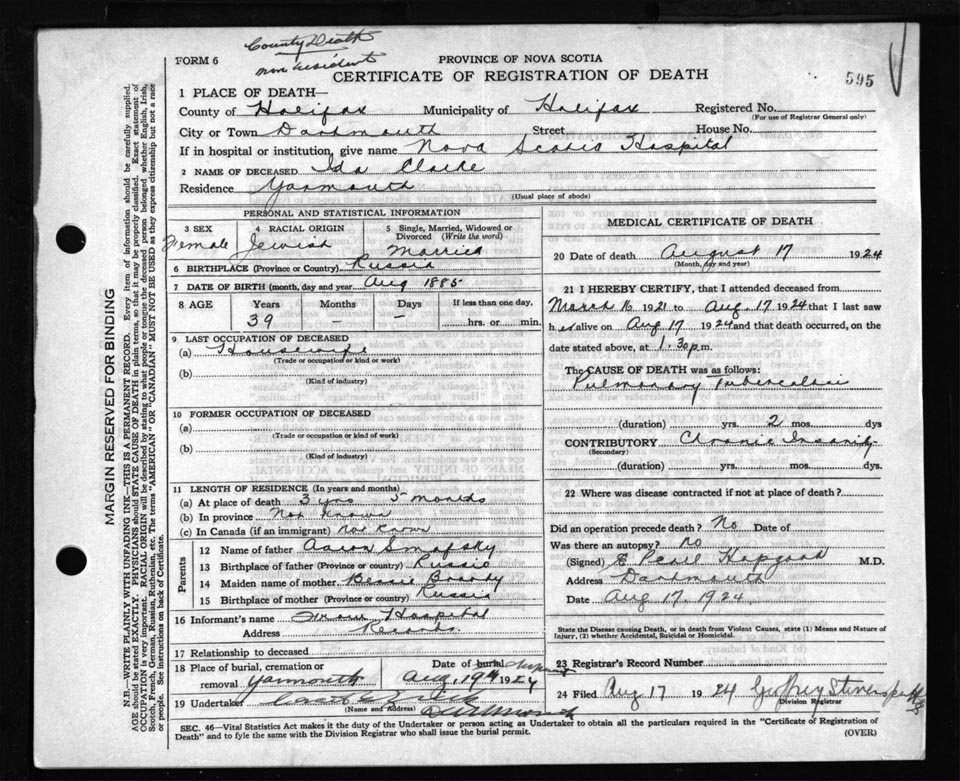 County Death
non resident
FORM 6
PROVINCE OF NOVA SCOTIA
CERTIFICATE OF REGISTRATION OF DEATH
595
1 PLACE OF DEATH—
County of Halifax Municipality of Halifax Registered No.
(For use of Registrar General only)
City or Town Dartmouth Street House No.
If in hospital or institution, give name Nova Scotia Hospital
2 NAME OF DECEASED Ida Clarke
Residence Yarmouth
(Usual place of abode)
PERSONAL AND STATISTICAL INFORMATION
3 SEX 4 RACIAL ORIGIN 5 Single, Married, Widowed or Divorced (Write the word)
Female Jewish Married
6 BIRTHPLACE (Province or Country) Russia
7 DATE OF BIRTH (month, day and year) Aug 1885
8 AGE Years Months Days If less than one day.
39 — — hrs. or min.
9 LAST OCCUPATION OF DECEASED
(a) Housewife
(Trade or occupation or kind or work)
(b)
(Kind of industry)
10 FORMER OCCUPATION OF DECEASED
(a)
(Trade or occupation or kind of work)
(b)
(Kind of industry)
11 LENGTH OF RESIDENCE (In years and months)
(a) At place of death 3 yrs 5 months
(b) In province Not Known
(c) In Canada (if an immigrant) Not Known
Parents
12 Name of father Aaron
13 Birthplace of father (Province or country) Russia
14 Maiden name of mother Bessie
15 Birthplace of mother (Province or country) Russia
16 Informant's name From Hospital
Address Records
17 Relationship to deceased
18 Place of burial, cremation or removal Yarmouth
Date of burial
Aug. 19th 1924
19 Undertaker
(Name and Address)
MEDICAL CERTIFICATE OF DEATH
20 Date of death August 17 1924
(Month, day and year)
21 I HEREBY CERTIFY, that I attended deceased from
March 16 1921 to Aug. 17 1924 that I last saw
h er alive on Aug 17 1924 and that death occurred, on the
date stated above, at 1.30 p.m.
The CAUSE OF DEATH was as follows:
Pulmonary Tuberculosis
(duration) yrs. 2 mos. dys
CONTRIBUTORY Chronic Insanity
(Secondary)
(duration) yrs. mos. dys.
22 Where was disease contracted if not at place of death?
Did an operation precede death? No Date of
Was there an autopsy? No
(Signed) E Hopgood M.D.
Address Dartmouth
Date Aug 17. 1924
State the Disease causing Death, or in death from Violent Causes, state (1) Means and Nature of
Injury, (2) whether Accidental, Suicidal or Homicidal.
23 Registrar's Record Number
24 Filed Aug 17 1924 Geoffrey Stevens
Division Registrar
SEC. 46—Vital Statistics Act makes it the duty of the Undertaker or person acting as Undertaker to obtain all the particulars required in the "Certificate of Registration of
Death" and to fyle the same with the Division Registrar who shall issue the burial permit.
(OVER)
MARGIN RESERVED FOR BINDING
N.B.—WRITE PLAINLY WITH UNFADING INK—THIS IS A PERMANENT RECORD. Every item of information should be carefully supplied.
AGE should be stated EXACTLY. PHYSICIANS should STATE CAUSE OF DEATH in plain terms, so that it may be properly classified. Exact statement of
OCCUPATION is very important. RACIAL ORIGIN will be described by stating to what people or tongue the deceased person belonged whether English, Irish,
Scotch, French, German, Russian, Ruthenian, etc. The terms "AMERICAN" OR "CANADIAN" MUST NOT BE USED as they express citizenship but not a race
or people. See instructions on back of Certificate.